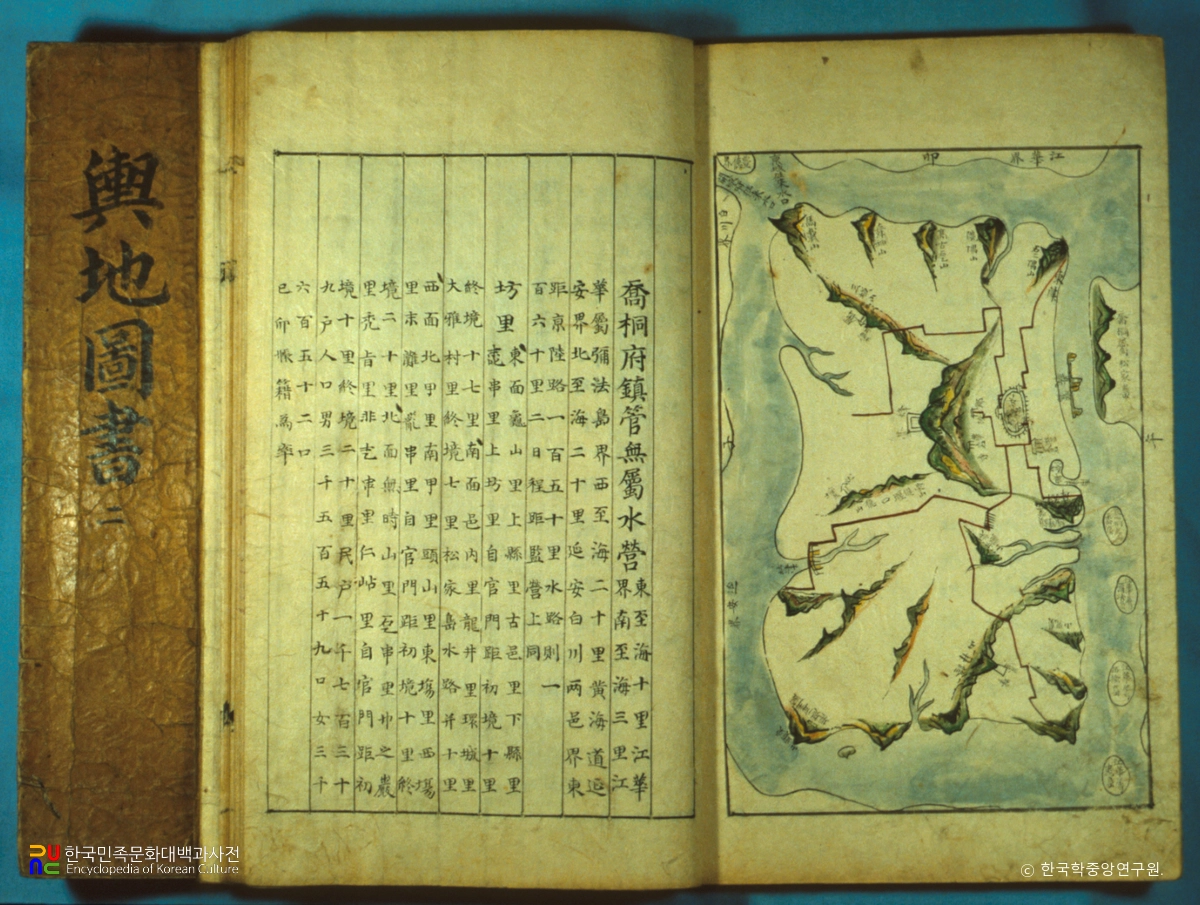 輿地圖書 二
喬桐府鎮管無屬水營
東至海十里江華
界南至海三里江
華屬彌法島界西至海二十里黃海道延
安界北至海二十里延安白川兩邑界東
距京陸路一百五十里水路則一
百六十里二日程距監營上同
坊里
東面龜山里上縣里古邑里下縣里
遠串里上坊里自官門距初境十里
終境十七里南面邑內里龍井里環城里
大雅村里終境七里松家島水路幷十里
西面北甲里南甲里頭山里東塲里西塲
里末灘里亂串里自官門距初境十里終
境二十里北面無時山里乭串里坤之巖
里禿旨里非乭串里仁岾里自官門距初
境十里終境二十里民戶一千七百三十
九戶人口男三千五百五十九口女三千
六百五十二口
己卯帳籍爲率
江華界
卯
午
한국민족문화대백과사전
Encyclopedia of Korean Culture
© 한국학중앙연구원.